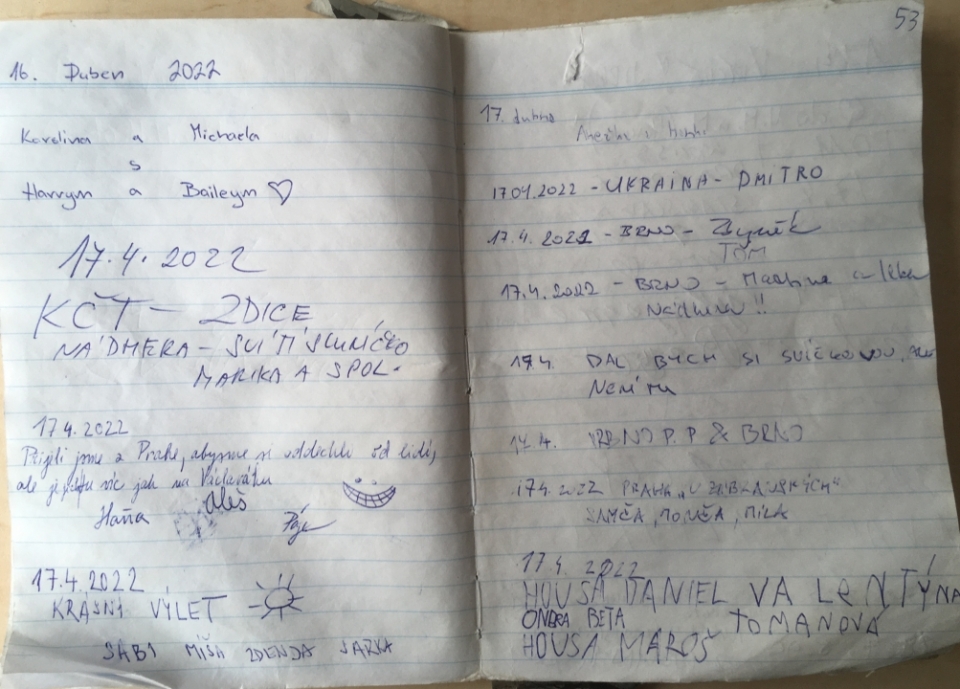 16. Duben 2022
Karolina a Michaela
s
Harrym a Baileym
17.4.2022
KČT - ZDICE
NÁDHERA - SVÍTÍ SLUNÍČKO
MARIKA A SPOL.
17.4.2022
Přijeli jsme z Prahy, abysme si oddechli od lidí,
ale je jich tu víc jak na Václaváku
Haňa Aleš
17.4.2022
KRÁSNÝ VÝLET
SÁBI MÍŠA ZDENDA SARKA
53
17. dubna
17.04.2022 - UKRAINA - DMITRO
17.4.2022 - BRNO - Zbyněk
TOM
17.4.2022 - BRNO - a
Nádherný!!
17.4. DAL BYCH SI SVÍČKOVOU, ale
Není tu
17.4. BRNO P.P & BRNO
17.4.2022 PRAHA
MÍLA
17.4.2022
HOUSA DANIEL VALENTÝNA
ONDRA BETA TOMANOVÁ
HOUSA MAROŠ